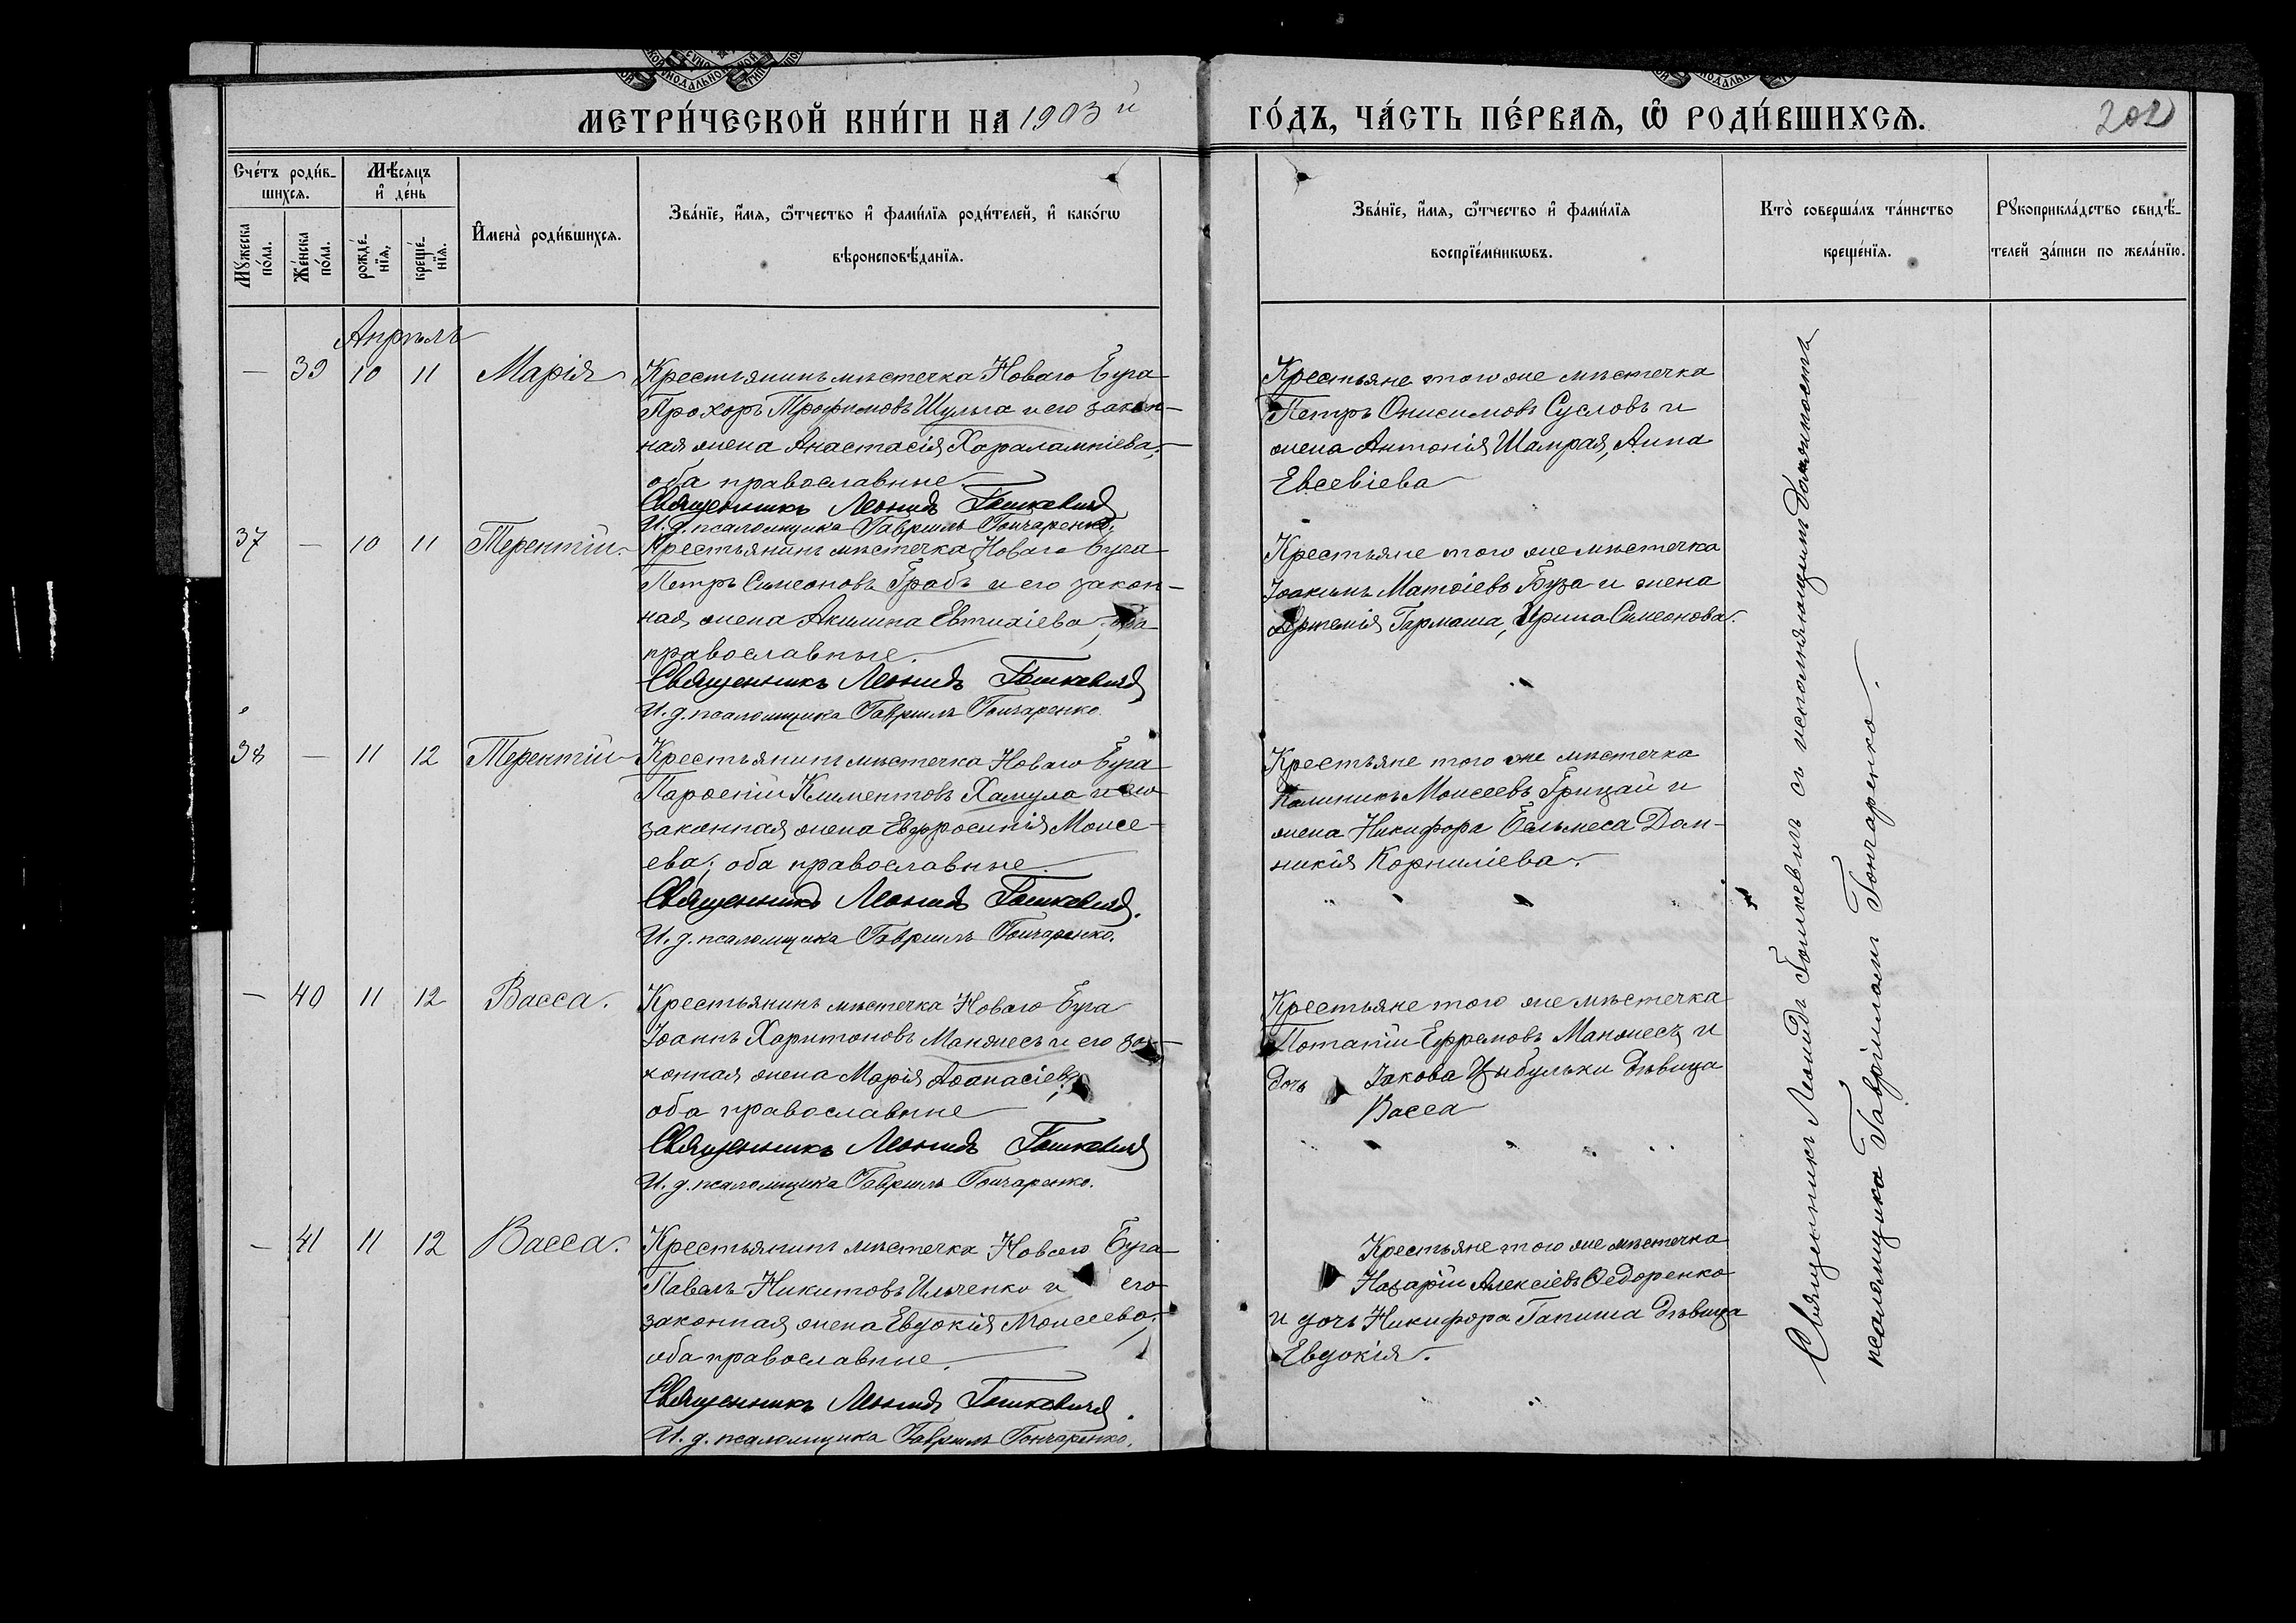 МЕТРИ́ЧЕСКОЙ КНИ́ГИ НА 1903 й
ГО́ДЪ, ЧА́СТЬ ПЕ́РВАЯ, Ѽ РОДИ́ВШИХСЯ.
202
Сче́тъ роди́в-
шихся.
Му́жеска
по́ла.
Же́нска
по́ла.
Мѣ́сяцъ
и҆ де́нь
рожде́-
нїя,
креще́-
нїя.
И҆мена̀ роди́вшихся.
Зва́нїе, и҆́мя, ѻ҆́тчество и҆ фами́лїя роди́телей, и҆ како́гѡ
вѣроисповѣ́данїя.
Зва́нїе, и҆́мя, ѻ҆́тчество и҆ фами́лїя
воспрїе́мникѡвъ.
Кто̀ соверша́лъ та́инство
креще́нїя.
Рꙋкоприкла́дство свидѣ́-
телей за́писи по жела́нїю.
Апрѣль
— 39 10 11 Марія
Крестьянинъ мѣстечка Новаго Буга
Прохоръ Трофимовъ Шульга и его закон-
ная жена Анастасія Харалампіева,
оба православные
Священникъ Леонидъ Гошкевичъ
И. д. псаломщика Гавріилъ Гончаренко.
Крестьяне того же мѣстечка
Петръ Онисимовъ Сусловъ и
жена Антонія Шамрая, Анна
Евсевіева
37 — 10 11 Терентій.
Крестьянинъ мѣстечка Новаго Буга
Петръ Симеоновъ Грабъ и его закон-
ная жена Акилина Евтихіева, оба
православные.
Священникъ Леонидъ Гошкевичъ
И. д. псаломщика Гавріилъ Гончаренко.
Крестьяне того же мѣстечка
Іоакимъ Матѳіевъ Буза и жена
Артемія Гармаша, Ирина Симеонова.
38 — 11 12 Терентій
Крестьянинъ мѣстечка Новаго Буга
Парѳеній Климентовъ Хамула и его
законная жена Евфросинія Моисе-
ева; оба православные.
Священникъ Леонидъ Гошкевичъ.
И. д. псаломщика Гавріилъ Гончаренко.
Крестьяне того же мѣстечка
Калиникъ Моисеевъ Грицай и
жена Никифора Бельмеса Дом-
никія Корниліева.
— 40 11 12 Васса.
Крестьянинъ мѣстечка Новаго Буга
Іоаннъ Харитоновъ Манжесъ и его за-
конная жена Марія Аѳанасіева;
оба православные
Священникъ Леонидъ Гошкевичъ
И. д. псаломщика Гавріилъ Гончаренко.
Крестьяне того же мѣстечка
Потапій Ефремовъ Манжесъ и
дочь Іакова Цыбульки дѣвица
Васса
— 41 11 12 Васса.
Крестьянинъ мѣстечка Новаго Буга
Павелъ Никитовъ Ильченко и его
законная жена Евдокія Моисеева;
оба православные.
Священникъ Леонидъ Гошкевичъ.
И. д. псаломщика Гавріилъ Гончаренко.
Крестьяне того же мѣстечка
Назарій Алексіевъ Ѳедоренко
и дочь Никифора Гапиша дѣвица
Евдокія.
Священникъ Леонидъ Гошкевичъ съ исполняющимъ должность
псаломщика Гавріиломъ Гончаренко.